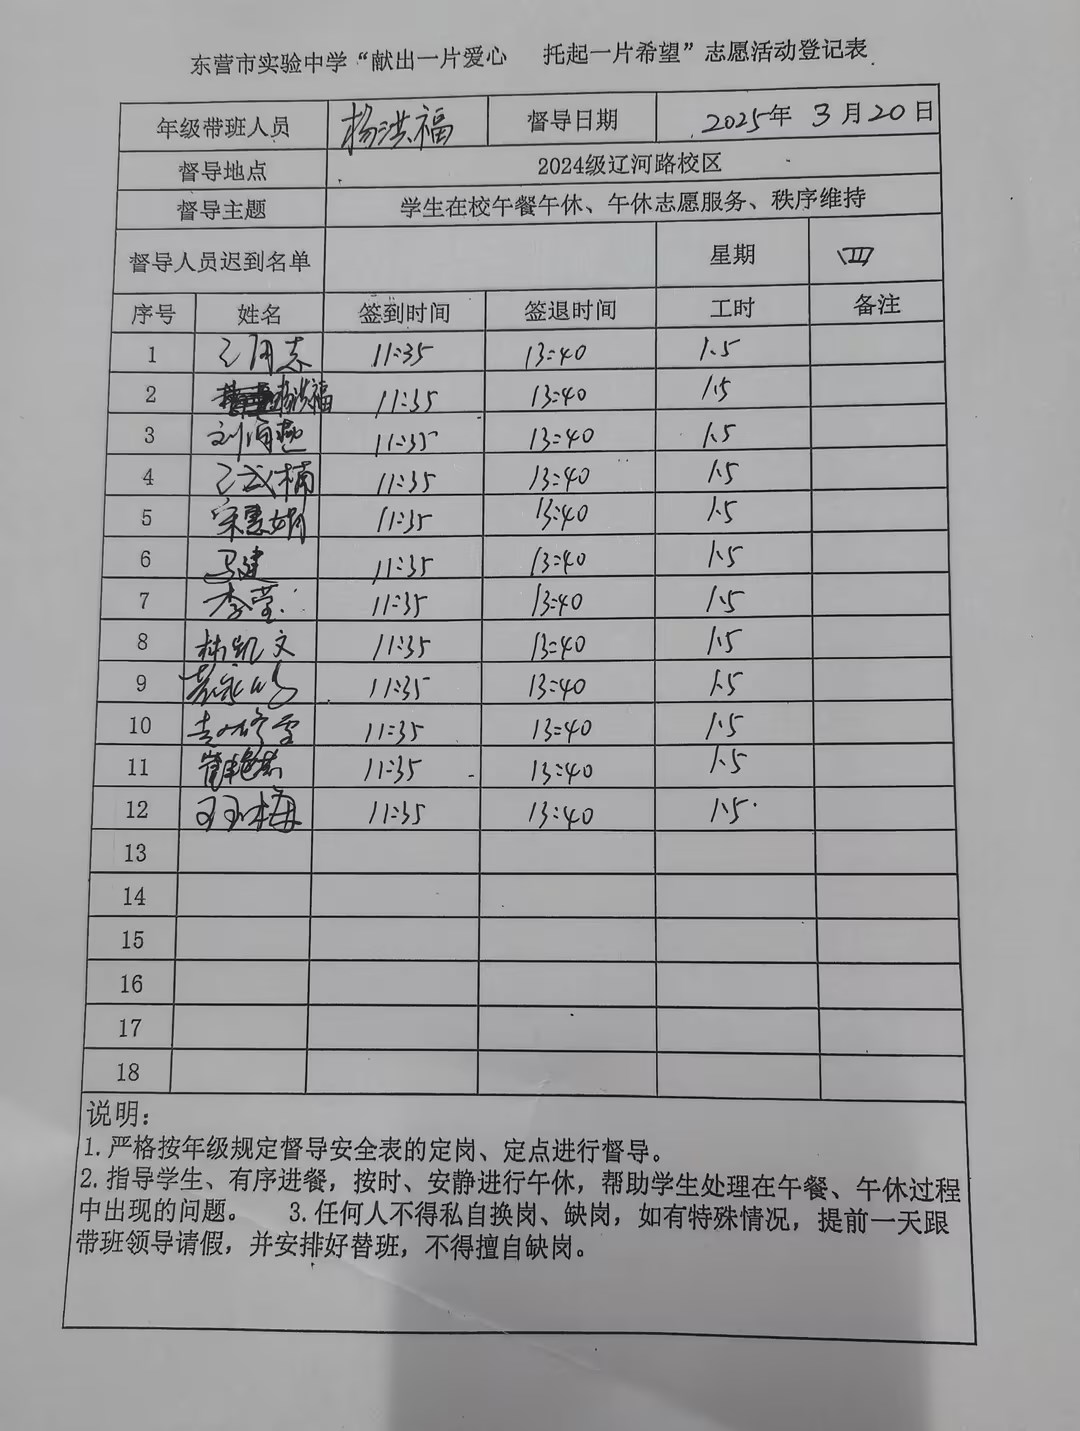 东营市实验中学“献出一片爱心 托起一片希望”志愿活动登记表
年级带班人员 杨洪福 督导日期 2025年 3月20日
督导地点 2024级辽河路校区
督导主题 学生在校午餐午休、午休志愿服务、秩序维持
督导人员迟到名单 星期 四
序号 姓名 签到时间 签退时间 工时 备注
1 11:35 13:40 1.5
2 杨洪福 11:35 13:40 1.5
3 刘海燕 11:35 13:40 1.5
4 王武楠 11:35 13:40 1.5
5 宋慧娟 11:35 13:40 1.5
6 马健 11:35 13:40 1.5
7 李莹 11:35 13:40 1.5
8 林凯文 11:35 13:40 1.5
9 11:35 13:40 1.5
10 11:35 13:40 1.5
11 11:35 13:40 1.5
12 王玉梅 11:35 13:40 1.5
13
14
15
16
17
18
说明：
1.严格按年级规定督导安全表的定岗、定点进行督导。
2.指导学生、有序进餐，按时、安静进行午休，帮助学生处理在午餐、午休过程
中出现的问题。 3.任何人不得私自换岗、缺岗，如有特殊情况，提前一天跟
带班领导请假，并安排好替班，不得擅自缺岗。